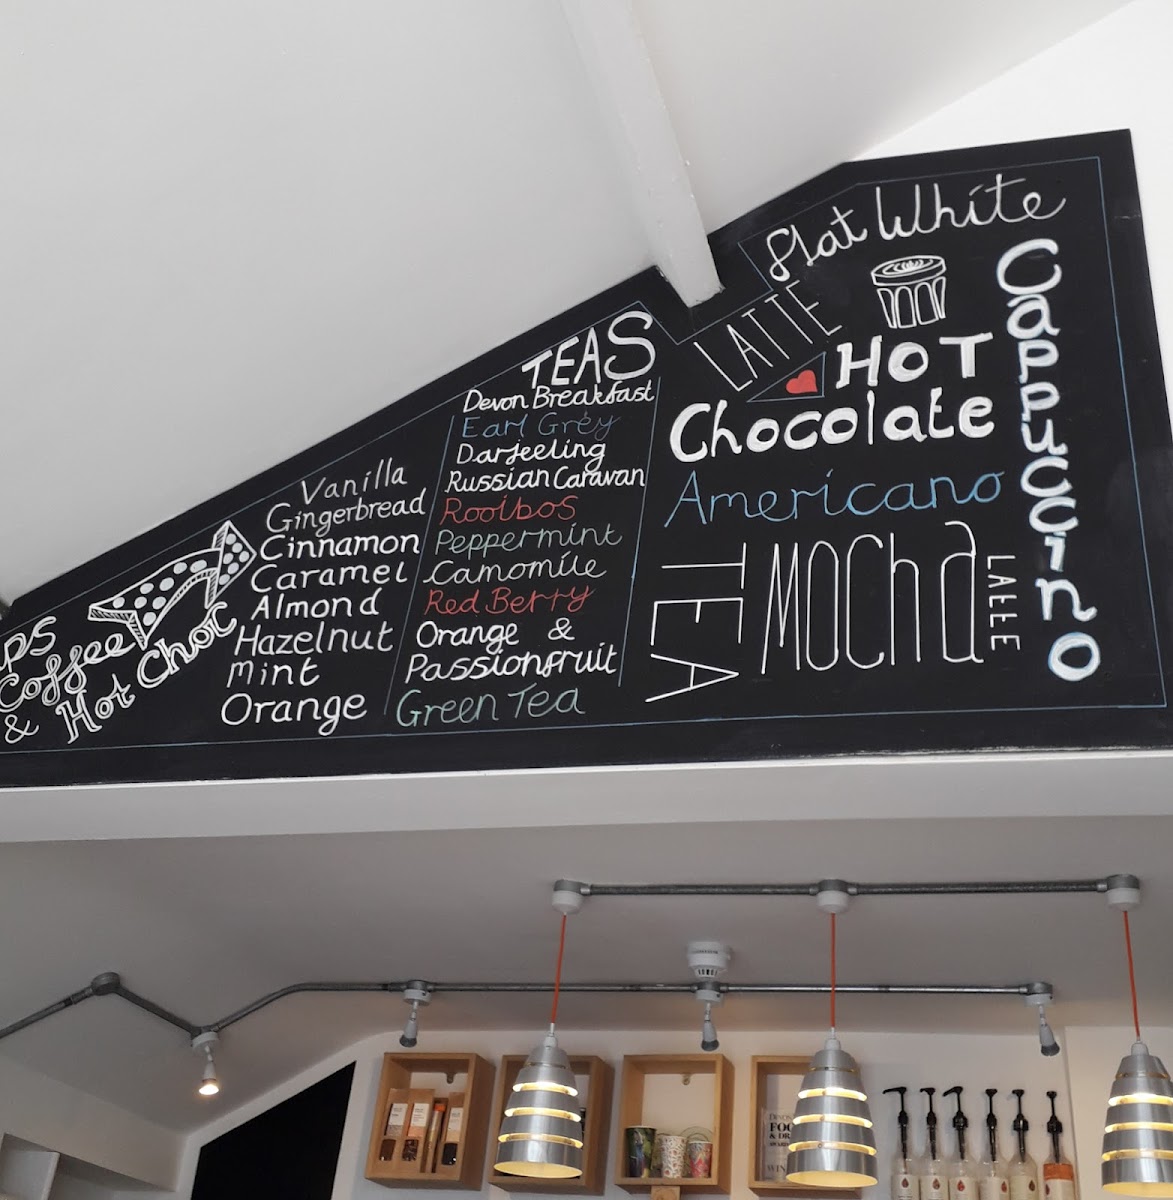 PS
Coffee
& Hot Choc
Vanilla
Gingerbread
Cinnamon
Caramel
Almond
Hazelnut
Mint
Orange
TEAS
Devon Breakfast
Earl Grey
Darjeeling
Russian Caravan
Rooibos
Peppermint
Camomile
Red Berry
Orange &
Passionfruit
Green Tea
Flat White
LATTE
HOT
Chocolate
Americano
TEA
Mocha
LATTE
Cappuccino
FOO
& DR
WIN